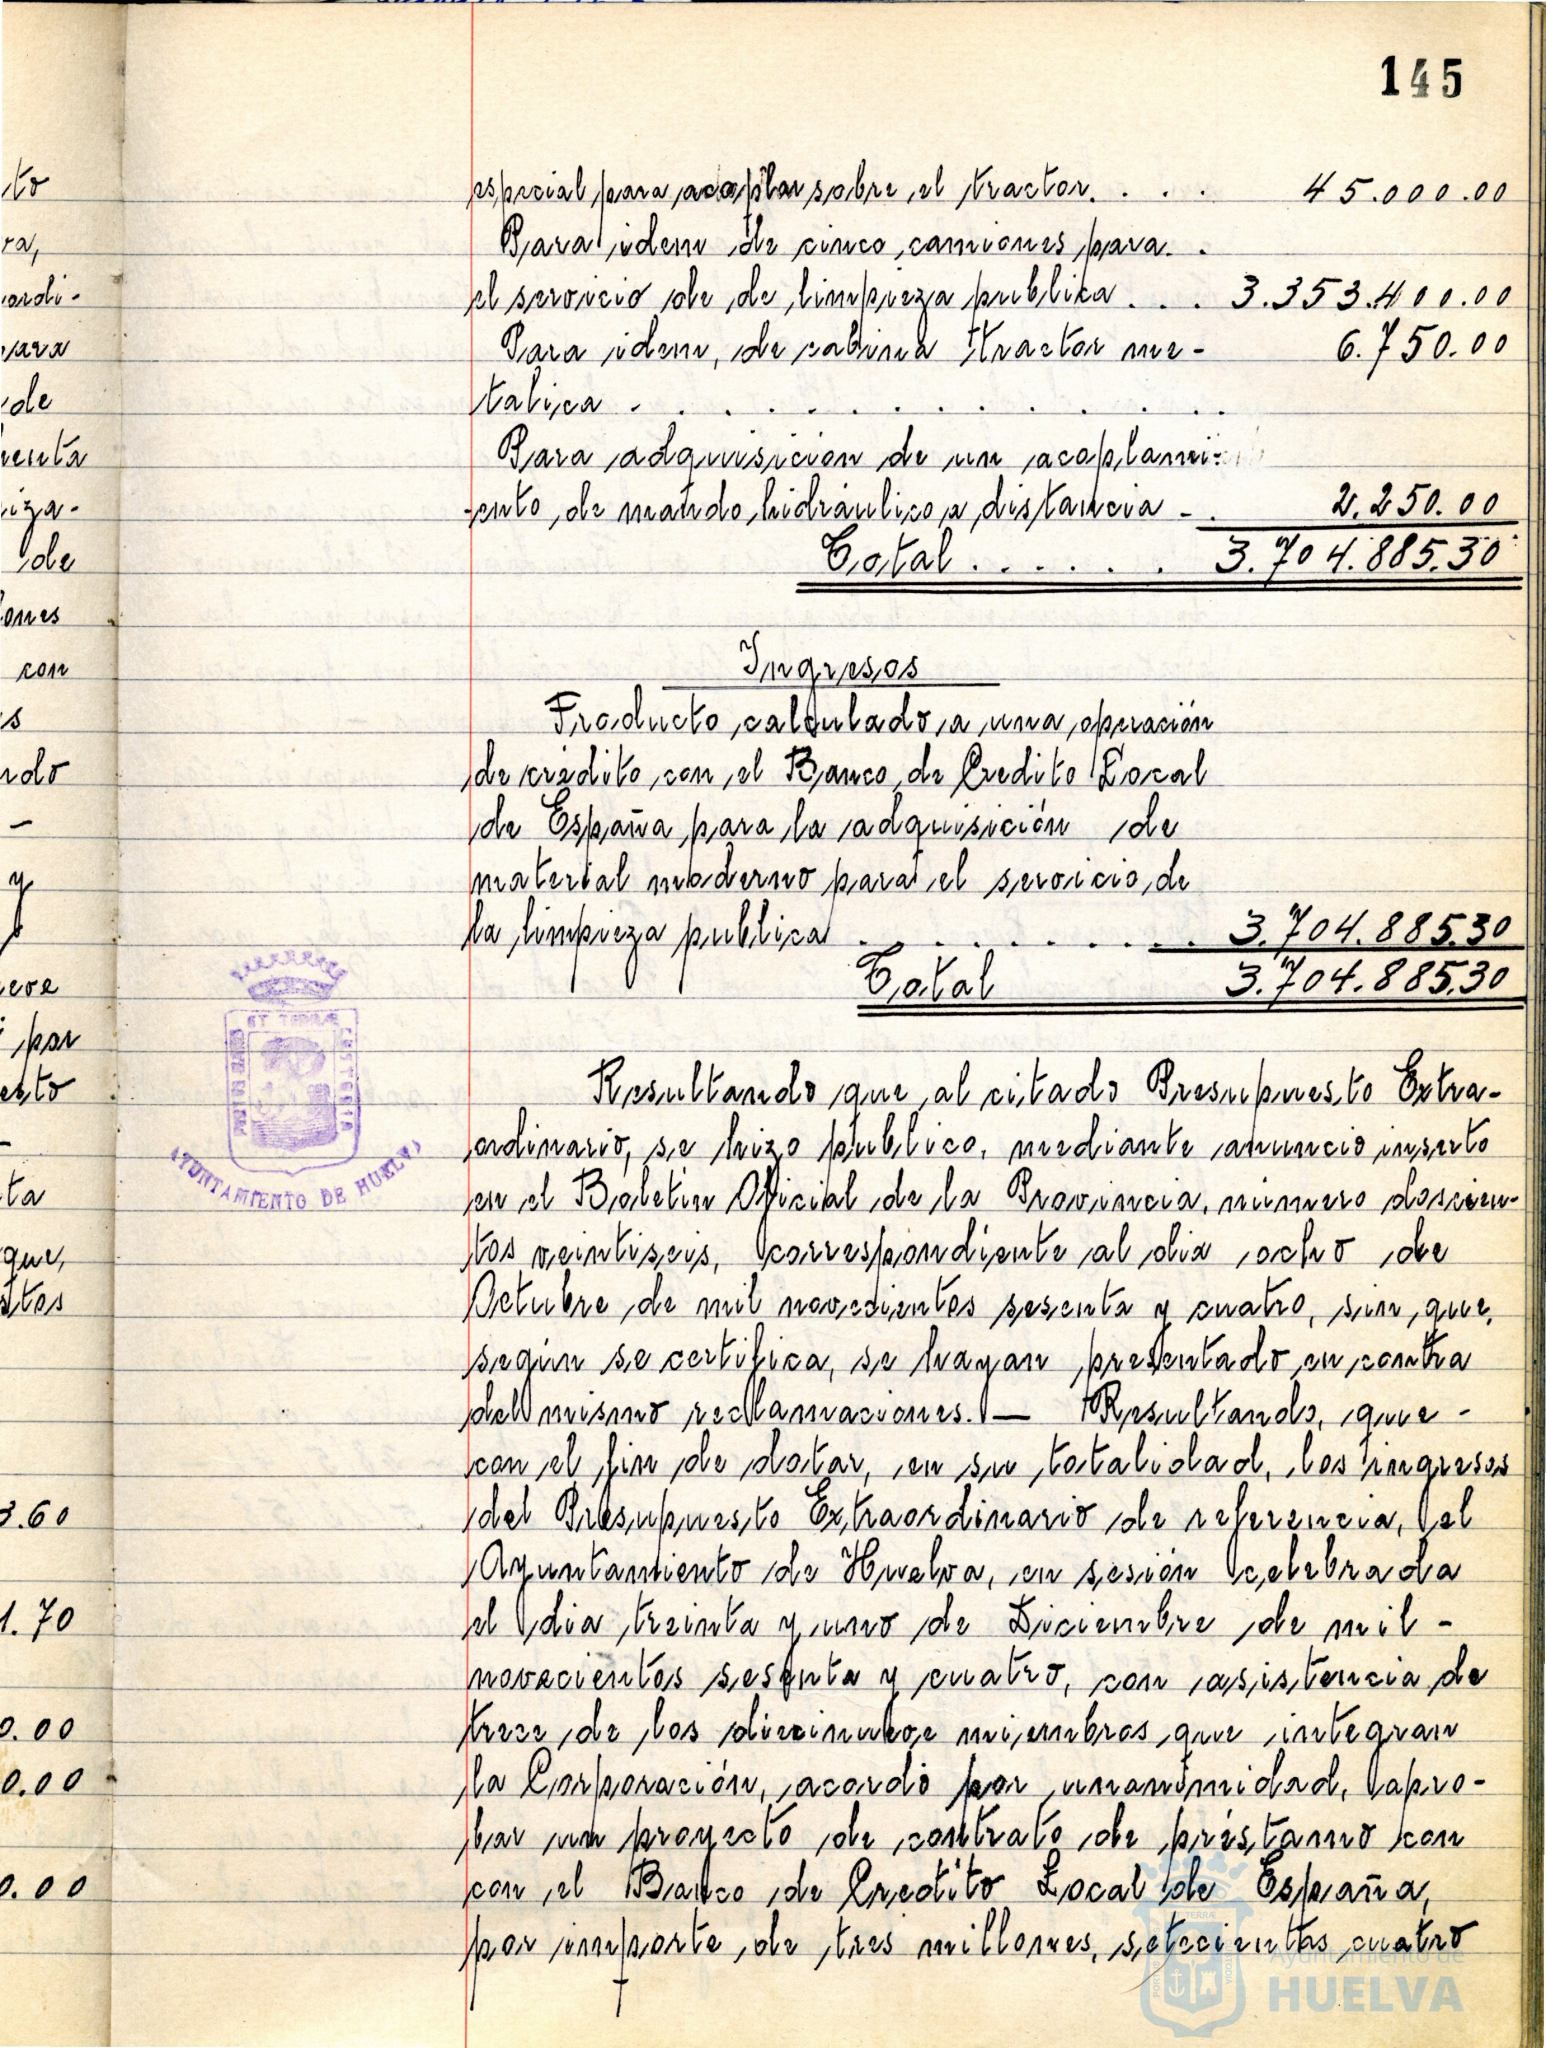 145
especial para acoplar sobre el tractor. . . . 45.000.00
Para idem de cinco camiones para. .
el servicio de de limpieza publica . . . 3.353.400.00
Para idem, de cabina tractor me- 6.750.00
talica . . . . . . . . . . . .
Para adquisición de un acoplami-
-ento de mando hidráulico a distancia - . 2.250.00
Total . . . . . . 3.704.885.30
Ingresos
Producto calculado a una operación
de crédito con el Banco de Credito Local
de España para la adquisición de
material moderno para el servicio de
la limpieza publica . . . . . . . . 3.704.885.30
Total 3.704.885.30
Resultando que al citado Presupuesto Extra-
ordinario, se hizo publico, mediante anuncio inserto
en el Boletin Oficial de la Provincia, número doscien-
tos veintiseis, correspondiente al dia ocho de
Octubre de mil novecientos sesenta y cuatro, sin que,
según se certifica, se hayan presentado en contra
del mismo reclamaciones. — Resultando, que -
con el fin de dotar, en su totalidad, los ingresos
del Presupuesto Extraordinario de referencia, el
Ayuntamiento de Huelva, en sesión celebrada
el dia treinta y uno de Diciembre de mil -
novecientos sesenta y cuatro, con asistencia de
trece de los diecinueve miembros que integran
la Corporación, acordó por unanimidad, apro-
bar un proyecto de contrato de préstamo con
con el Banco de Credito Local de España,
por importe de tres millones, setecientos cuatro
AYUNTAMIENTO DE HUELVA
Ayuntamiento de
HUELVA
ito
ra,
ordi-
para
de
uenta
iza-
de
iones
con
s
ndo
-
y
eve
por
esto
-
ta
que,
stos
3.60
1.70
0.00
0.00
0.00